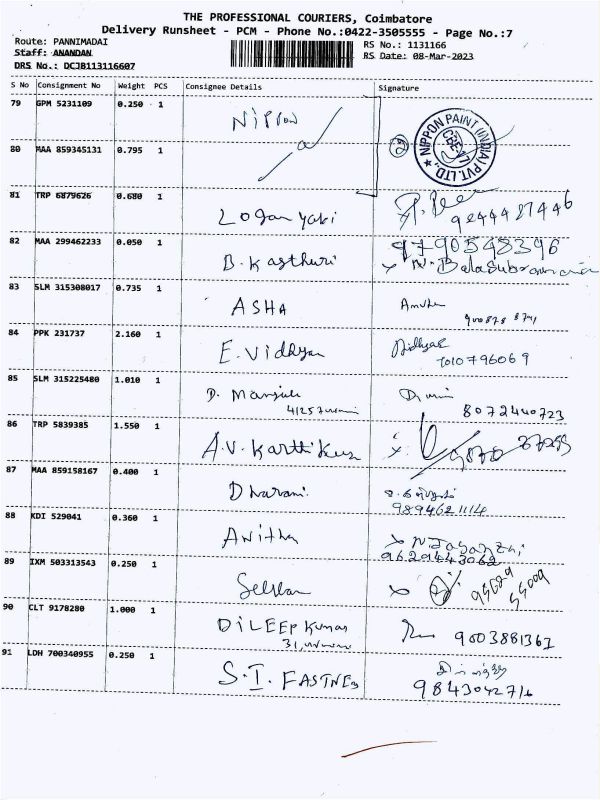 THE PROFESSIONAL COURIERS, Coimbatore
Delivery Runsheet - PCM - Phone No.:0422-3505555 - Page No.:7
Route: PANNIMADAI
Staff: ANANDAN
DRS No.: DCJB113116607
RS No.: 1131166
RS Date: 08-Mar-2023
S No Consignment No Weight PCS Consignee Details Signature
79 GPM 5231109 0.250 1 Nippon
NIPPON PAINT (INDIA) PVT. LTD. CBE
80 MAA 859345131 0.795 1
81 TRP 6879626 0.680 1 Loganyaki
9244487446
82 MAA 299462233 0.050 1 B. Kasthuri 9790548396
x N. Balasubramanian
83 SLM 315308017 0.735 1 ASHA
84 PPK 231737 2.160 1 E. Vidhya
7010796069
85 SLM 315225480 1.010 1 D. Manjula
8072440723
86 TRP 5839385 1.550 1 A.V. Karthikeyan
87 MAA 859158167 0.400 1 Dharani
9894621114
88 KDI 529041 0.360 1 Anitha
9629443062
89 IXM 503313543 0.250 1 Selvan
90 CLT 9178280 1.000 1 DILEEP Kumar
9003881361
91 LDH 700340955 0.250 1 S.I. FASTNES
9843042716